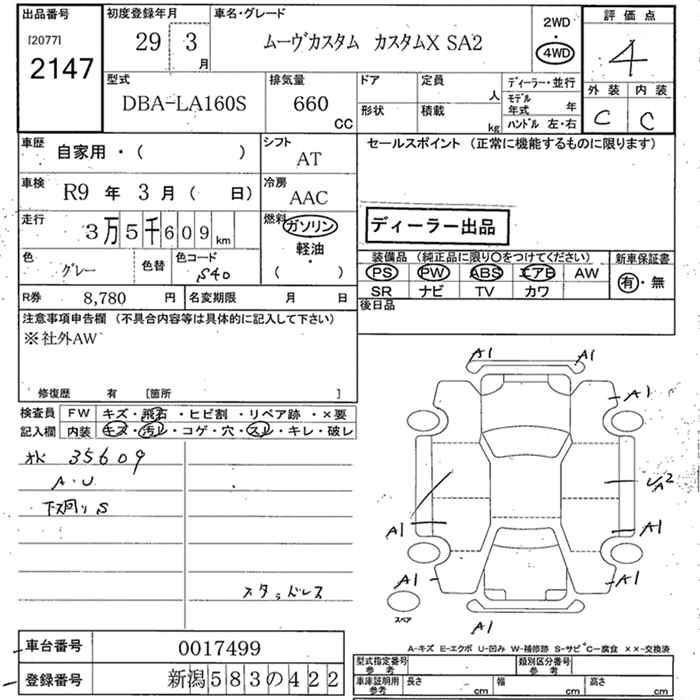 出品番号
[2077]
2147
初度登録年月
29 3 月
車名・グレード
ムーヴカスタム カスタムX SA2
2WD
・
4WD
評価点
4
外装 内装
C C
型式
DBA-LA160S
排気量
660 CC
ドア
定員 人
形状
積載 kg
ディーラー・並行
モデル年式 年
ハンドル 左・右
車歴
自家用・( )
シフト
AT
車検
R9 年 3 月 ( 日)
冷房
AAC
走行
3万5千609km
燃料
ガソリン
軽油
( ・ )
色
グレー
色替
色コード
S40
R券 8,780 円
名変期限 月 日
セールスポイント (正常に機能するものに限ります)
ディーラー出品
装備品 (純正品に限り○をつけてください)
PS PW ABS エアB AW
SR ナビ TV カワ
新車保証書
有・無
後日品
注意事項申告欄 (不具合内容等は具体的に記入して下さい)
※社外AW
修復歴 有 [箇所 ]
検査員 FW キズ・飛石・ヒビ割・リペア跡・×要
記入欄 内装 キズ・汚レ・コゲ・穴・スレ・キレ・破レ
35609
A・U
下廻りS
スタッドレス
A1 A1
A1
A2
A1 A1
A1 A1
A1
スペア
A-キズ E-エクボ U-凹み W-補修跡 S-サビ C-腐食 ××-交換済
車台番号 0017499
登録番号 新潟583の422
型式指定番号 参考
類別区分番号 参考
車庫証明用 参考 長さ cm 幅 cm 高さ cm